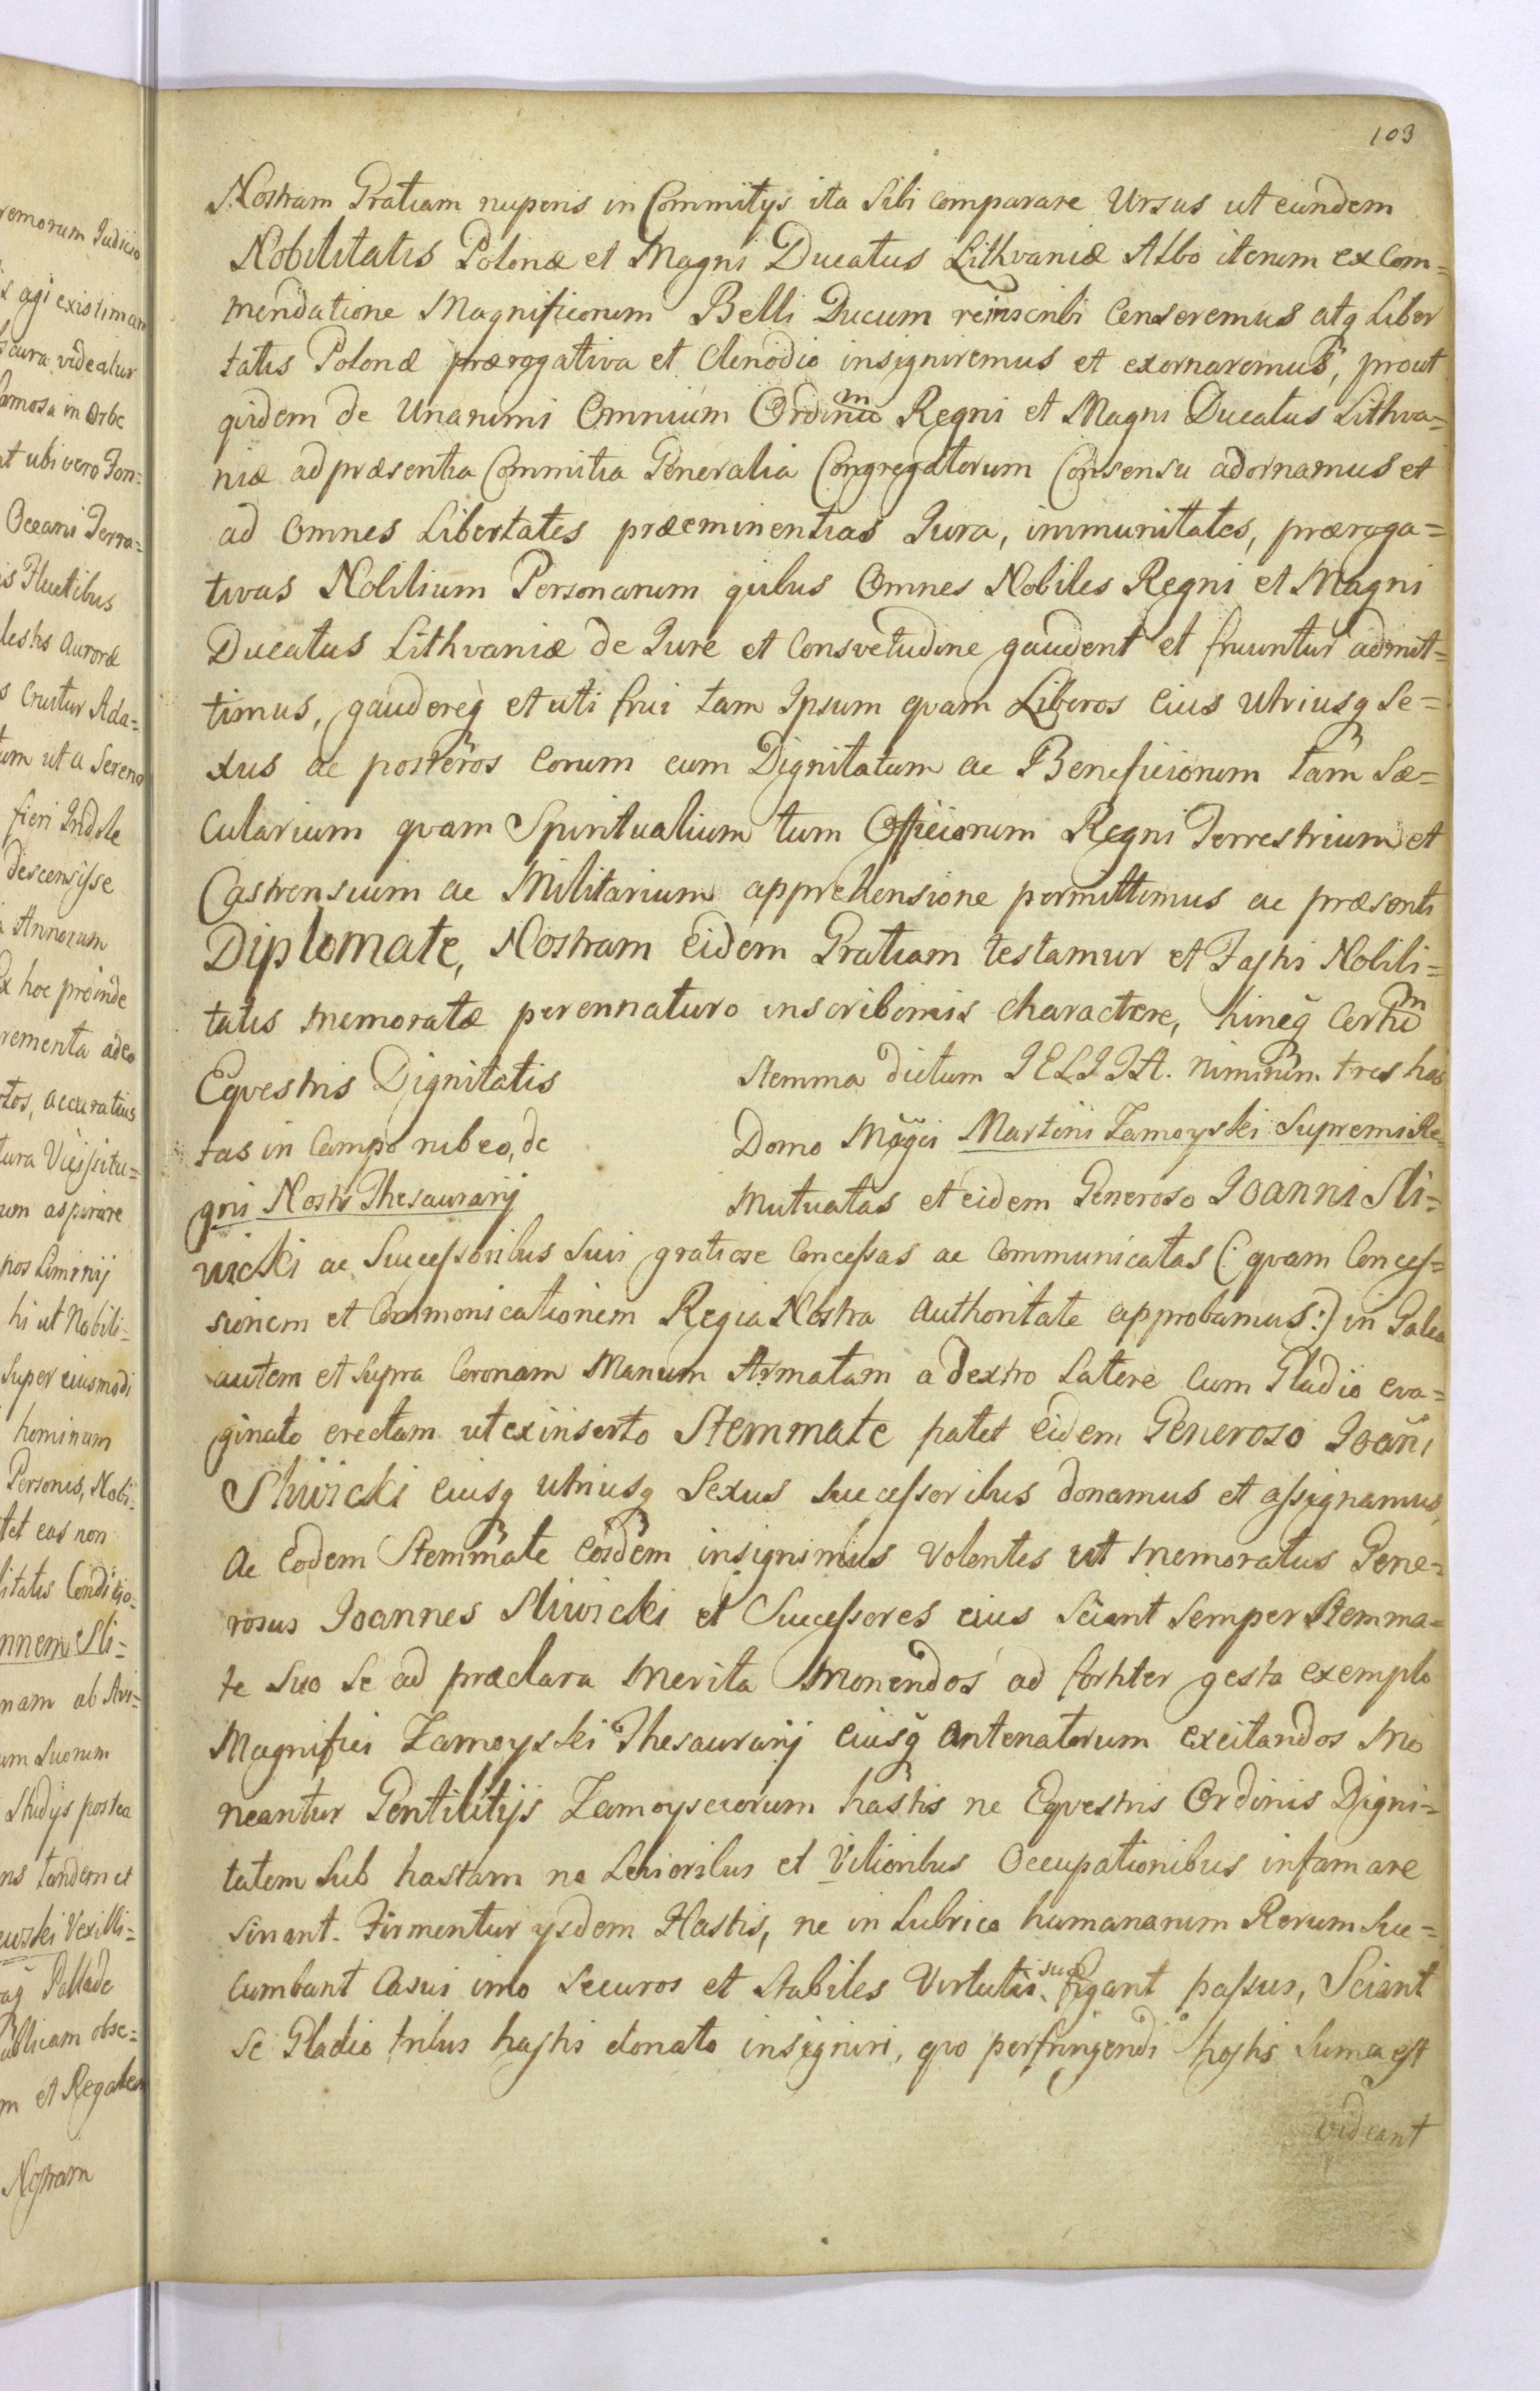 remorum Judicio
agi existimam
cura videatur
famosa in Orbe
at ubi vero Fon=
Oceani Terra=
is Fluctibus
lestis Auroræ
s Cruitur Ada=
tum ut a Sereno
fieri Indole
descensisse
Annorum
Ex hoc proinde
crementa adeo
tos, accuratius
tura Vicissitu=
um aspirare
pos Liminij
hi ut Nobili=
super eiusmodi
hominum
Personis, Nobi=
tet eas non
litatis Conditio=
nnem Sli=
nam ab Avi=
um Suorum
Studijs postea
ns tandem et
Vexilli=
Pallade
ublicam obse=
m et Regalem
Nostram
103
Nostram Gratiam nuperis in Commitijs ita Sibi comparare Ursus ut eundem
Nobilitatis Polonæ et Magni Ducatus Lithvaniæ Albo iterum ex Com=
mendatione Magnificorum Belli Ducum reinscribi Censeremus atq Liber
tatis Polonæ prærogativa et Clenodio insigniremus et exornaremus, prout
qvidem de Unanimi Omnium Ordinum Regni et Magni Ducatus Lithva=
niæ ad præsentia Commitia Generalia Congregatorum Consensu adornamus et
ad Omnes Libertates præeminentias Jura, immunitates, præroga=
tivas Nobilium Personarum qvibus Omnes Nobiles Regni et Magni
Ducatus Lithvaniæ de Jure et Consvetudine gaudent et fruuntur admit=
timus, gaudereq et uti frui tam Ipsum qvam Liberos Eius Utriusq Se=
xus ac posteros Eorum eum Dignitatum ac Beneficiorum tam Sæ=
cularium qvam Spiritualium tum Officiorum Regni Terrestrium et
Castrensium ac Militarium apprehensione permittimus ac præsenti
Diplomate, Nostram Eidem Gratiam testamur et Fastis Nobili=
tatis memoratæ perennaturo inscribimus charactere, hincq Certum
Eqvestris Dignitatis Stemma dictum JELITA. nimirum tres has
tas in Campo rubeo, de Domo Mãgci Martini Zamoyski Supremi Re=
gni Nostri Thesaurarij Mutuatas et eidem Generoso Joanni Sli=
wicki ac Successoribus Suis gratiose Concessas ac Communicatas (: qvam Conces=
sionem et Communicationem Regia Nostra Authoritate approbamus :) in Galea
autem et Supra Coronam Manum Armatam a dextro Latere Cum Gladio eva=
ginato erectam ut ex inserto Stemmate patet Eidem Generoso Joañi
Sliwicki Eiusq utriusq Sexus Successoribus donamus et assignamus,
Ac Eodem Stemmate Eosdem insignimus Volentes ut memoratus Gene=
rosus Joannes Sliwicki et Successores eius Sciant Semper Stemma=
te Suo Se ad præclara Merita Monendos ad fortiter gesta exemplo
Magnifici Zamoyski Thesaurarij Eiusq Antenatorum excitandos Mo
neantur Gentilitijs Zamoysciorum hastis ne Eqvestris Ordinis Digni=
tatem Sub hastam ne Levioribus et Vilioribus Occupationibus infamare
Sinant. Firmentur ysdem Hastis, ne in Lubrico humanarum Rerum Suc=
cumbant Casui imo Securos et Stabiles Virtutis suæ figant passus, Sciant
Se Gladio tribus hastis donato insigniri, qvo perfringendi hostis Suma est
videant